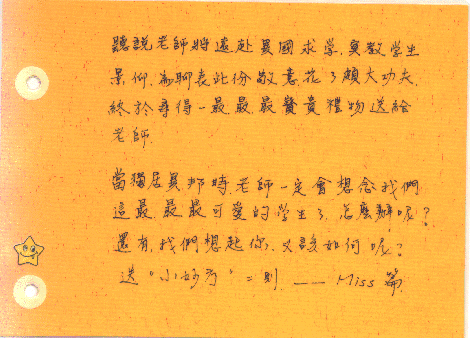 聽說老師將遠赴異國求學,真教學生
景仰,為聊表此份敬意,花了頗大功夫,
終於尋得一最、最、最寶貴禮物送給
老師.
當獨居異邦時,老師一定會想念我們
這最、最、最可愛的學生了,怎麼辦呢?
還有,我們想起你,又該如何呢?
送"小妙方"二則 —— Miss 篇